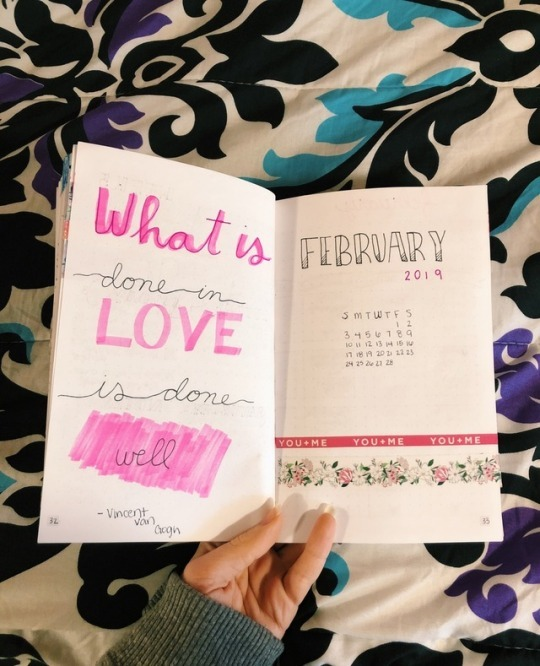 What is
done in
LOVE
is done
well
- Vincent
van
Gogh
32
FEBRUARY
2019
S M T W T F S
1 2
3 4 5 6 7 8 9
10 11 12 13 14 15 16
17 18 19 20 21 22 23
24 25 26 27 28
YOU+ME YOU+ME YOU+ME
33